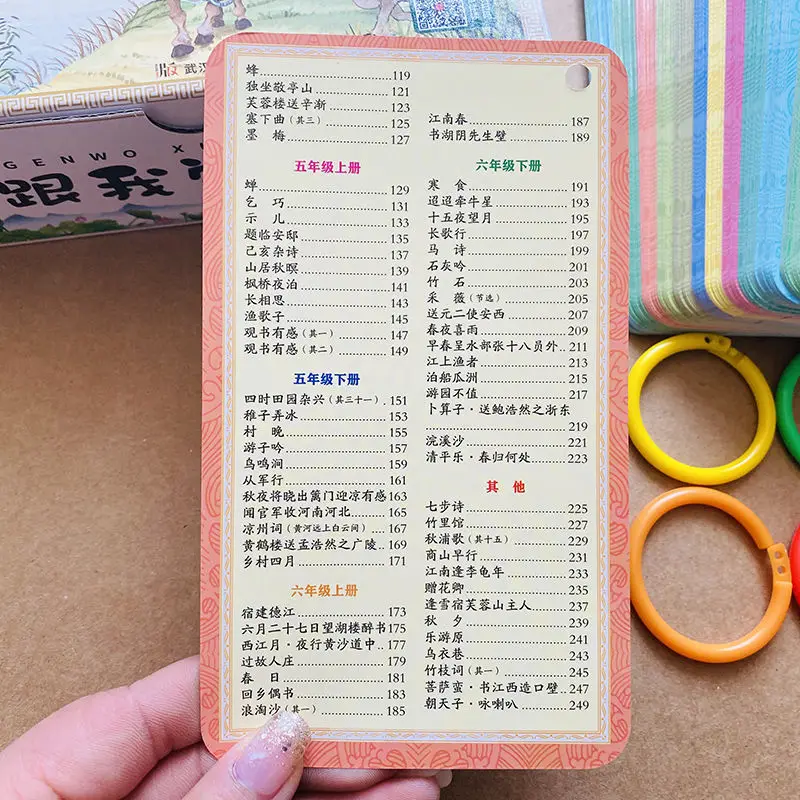 版 武汉
GENWO XU
跟我
蜂 119
独坐敬亭山 121
芙蓉楼送辛渐 123
塞下曲(其三) 125
墨 梅 127
五年级上册
蝉 129
乞 巧 131
示 儿 133
题临安邸 135
己亥杂诗 137
山居秋暝 139
枫桥夜泊 141
长相思 143
渔歌子 145
观书有感(其一) 147
观书有感(其二) 149
五年级下册
四时田园杂兴(其三十一) 151
稚子弄冰 153
村 晚 155
游子吟 157
鸟鸣涧 159
从军行 161
秋夜将晓出篱门迎凉有感163
闻官军收河南河北 165
凉州词(黄河远上白云间) 167
黄鹤楼送孟浩然之广陵 169
乡村四月 171
六年级上册
宿建德江 173
六月二十七日望湖楼醉书175
西江月·夜行黄沙道中 177
过故人庄 179
春 日 181
回乡偶书 183
浪淘沙(其一) 185
江南春 187
书湖阴先生壁 189
六年级下册
寒 食 191
迢迢牵牛星 193
十五夜望月 195
长歌行 197
马 诗 199
石灰吟 201
竹 石 203
采 薇(节选) 205
送元二使安西 207
春夜喜雨 209
早春呈水部张十八员外 211
江上渔者 213
泊船瓜洲 215
游园不值 217
卜算子·送鲍浩然之浙东
219
浣溪沙 221
清平乐·春归何处 223
其 他
七步诗 225
竹里馆 227
秋浦歌(其十五) 229
商山早行 231
江南逢李龟年 233
赠花卿 235
逢雪宿芙蓉山主人 237
秋 夕 239
乐游原 241
乌衣巷 243
竹枝词(其一) 245
菩萨蛮·书江西造口壁 247
朝天子·咏喇叭 249